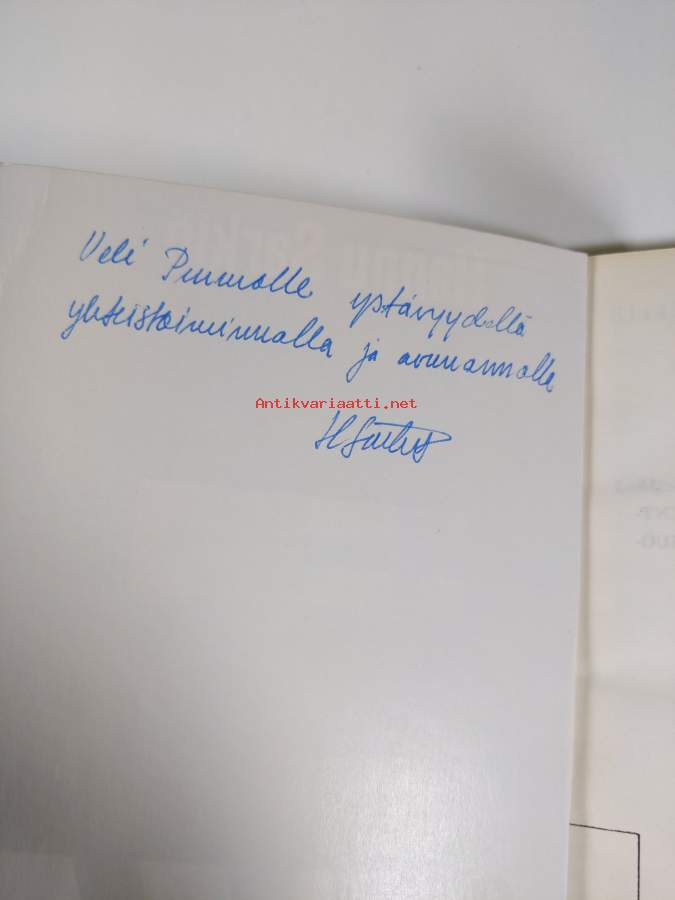 Veli Pummolle ystävyydellä
yhteistoiminnalla ja avunannolla
Antikvariaatti.net